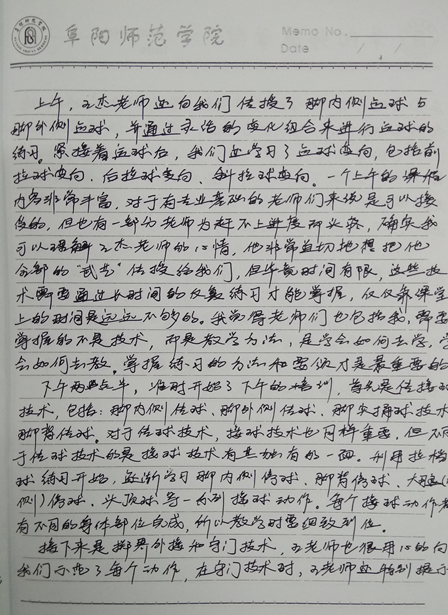 阜阳师范学院
Memo No.
Date / /
上午,王杰老师还向我们传授了脚内侧运球与
脚外侧运球,并通过灵活的变化组合来进行运球的
练习。紧接着运球后,我们还学习了运球变向,包括前
拉球变向、后拉球变向、斜拉球变向。一个上午的课程
内容非常丰富,对于有专业基础的老师们来说是可以接
受的,但也有一部分老师为赶不上进度而头疼,确实我
可以理解王杰老师的心情,他非常直切地想把他
全部的“武艺”传授给我们,但毕竟时间有限,这些技
术需要通过长时间的反复练习才能掌握,仅仅靠课堂
上的时间是远远不够的。我觉得老师们也包括我,需要
掌握的不是技术,而是教学方法,是学会如何去学,学
会如何去教。掌握练习的方法和要领才是最重要的
下午两点半,准时开始了下午的培训,首先是传接球
技术,包括:脚内侧传球、脚外侧传球、脚尖捅球技术
脚背传球。对于传球技术,接球技术也同样重要,但不同
于传球技术的是接球技术有其独有的一面。利用拉档
球练习开始,逐渐学习脚内侧停球、脚背停球、大腿(
侧)停球、头顶球等一系列接球动作。每个接球动作都
有不同的身体部位完成,所以教学时要细致到位。
接下来是掷界外球和守门技术,王老师也很用心的向
我们示范了每个动作,在守门技术时,王老师还特别提示